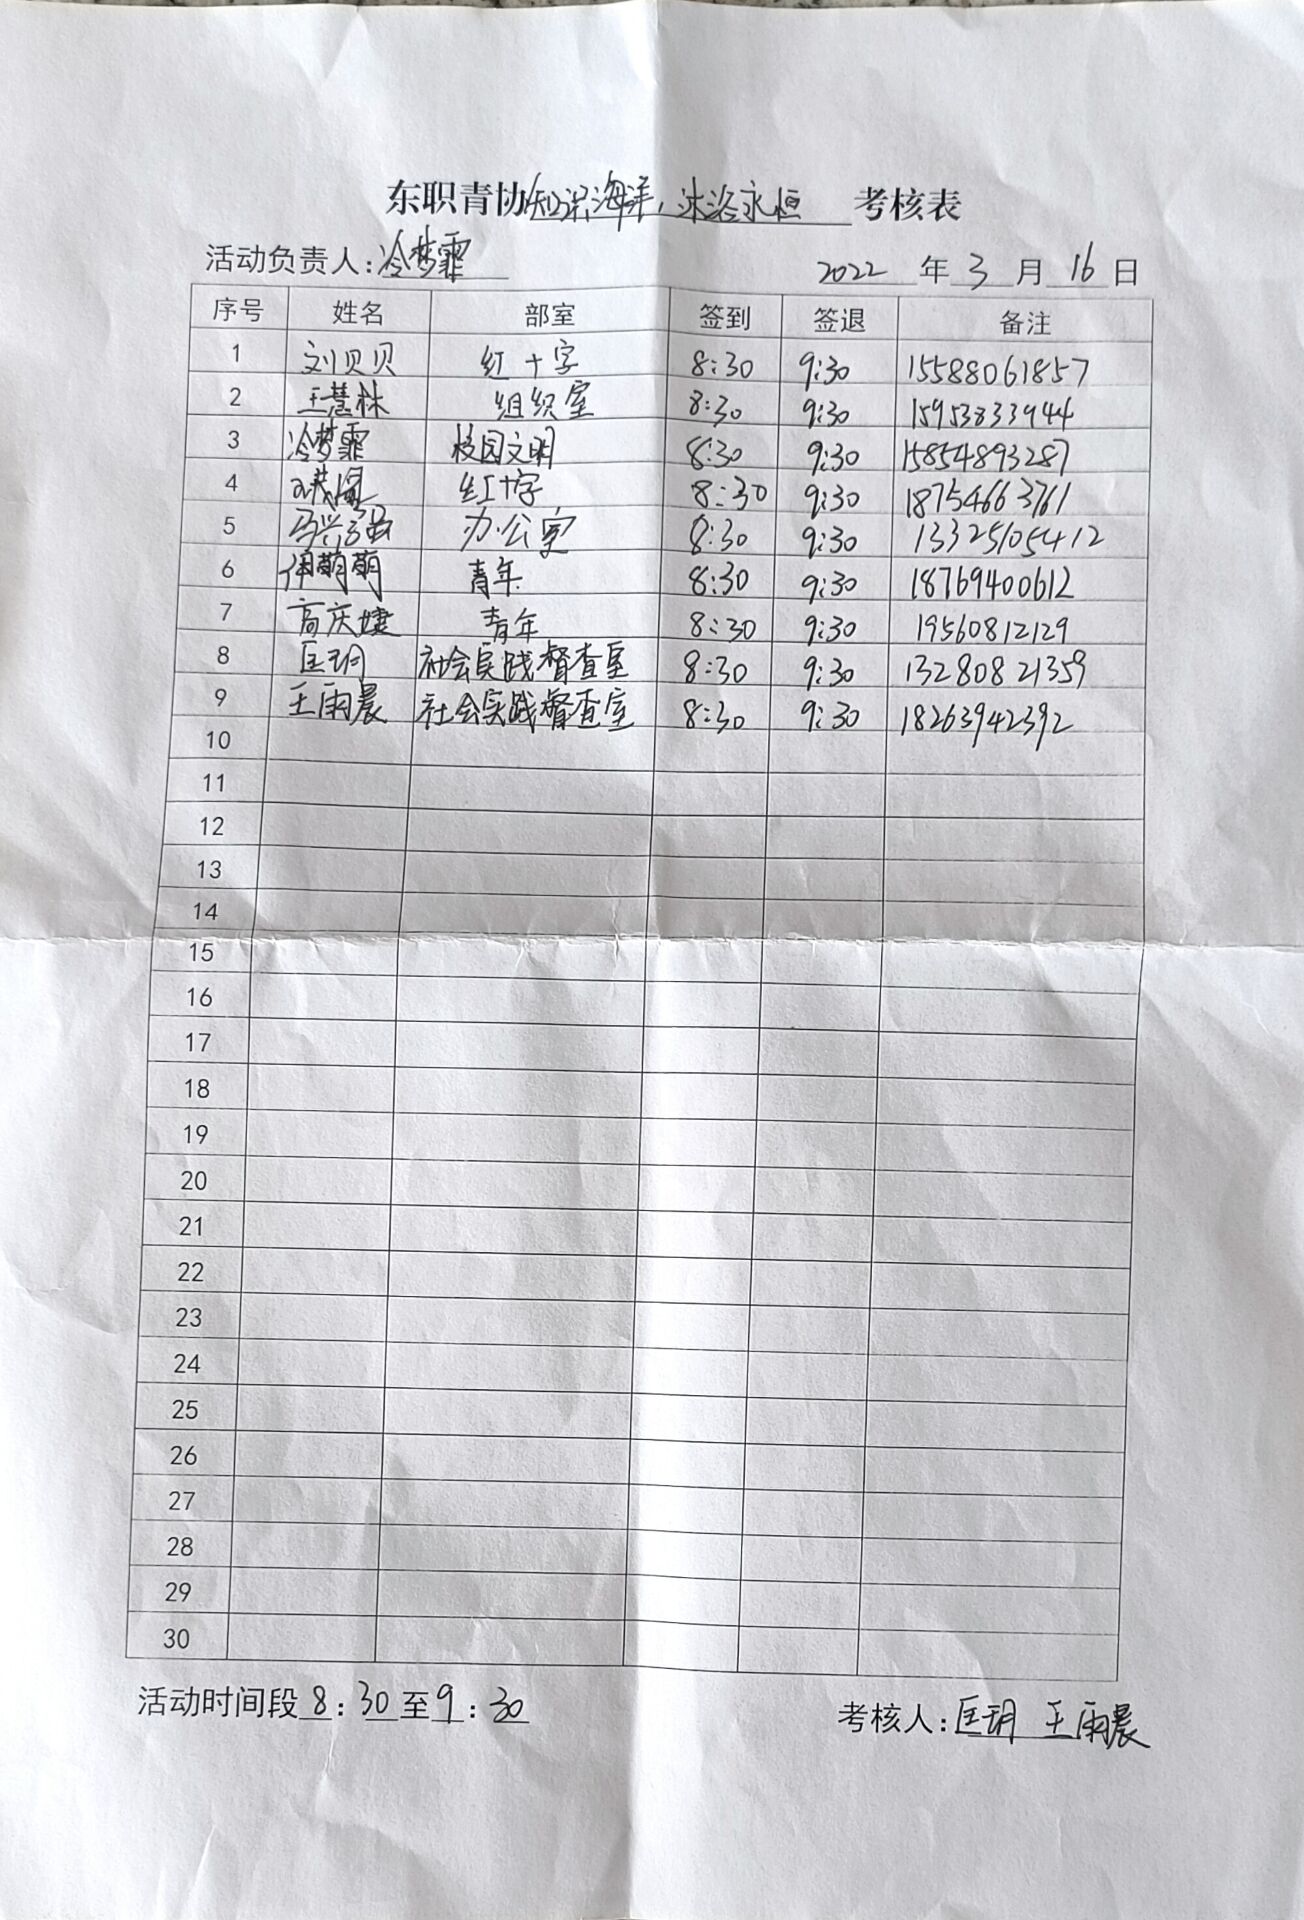 东职青协知识海洋,沐浴永恒考核表
活动负责人:冷梦霏 2022年3月16日
序号 姓名 部室 签到 签退 备注
1 刘贝贝 红十字 8:30 9:30 15588061857
2 王慧林 组织室 8:30 9:30 15953833944
3 冷梦霏 校园文明 8:30 9:30 15854893287
4 红十字 8:30 9:30 18754663761
5 办公室 8:30 9:30 13325105412
6 萌萌 青年 8:30 9:30 18769400612
7 高庆婕 青年 8:30 9:30 19560812129
8 匡玥 社会实践督查室 8:30 9:30 13280821359
9 王雨晨 社会实践督查室 8:30 9:30 18263942392
10
11
12
13
14
15
16
17
18
19
20
21
22
23
24
25
26
27
28
29
30
活动时间段8:30至9:30 考核人:匡玥 王雨晨